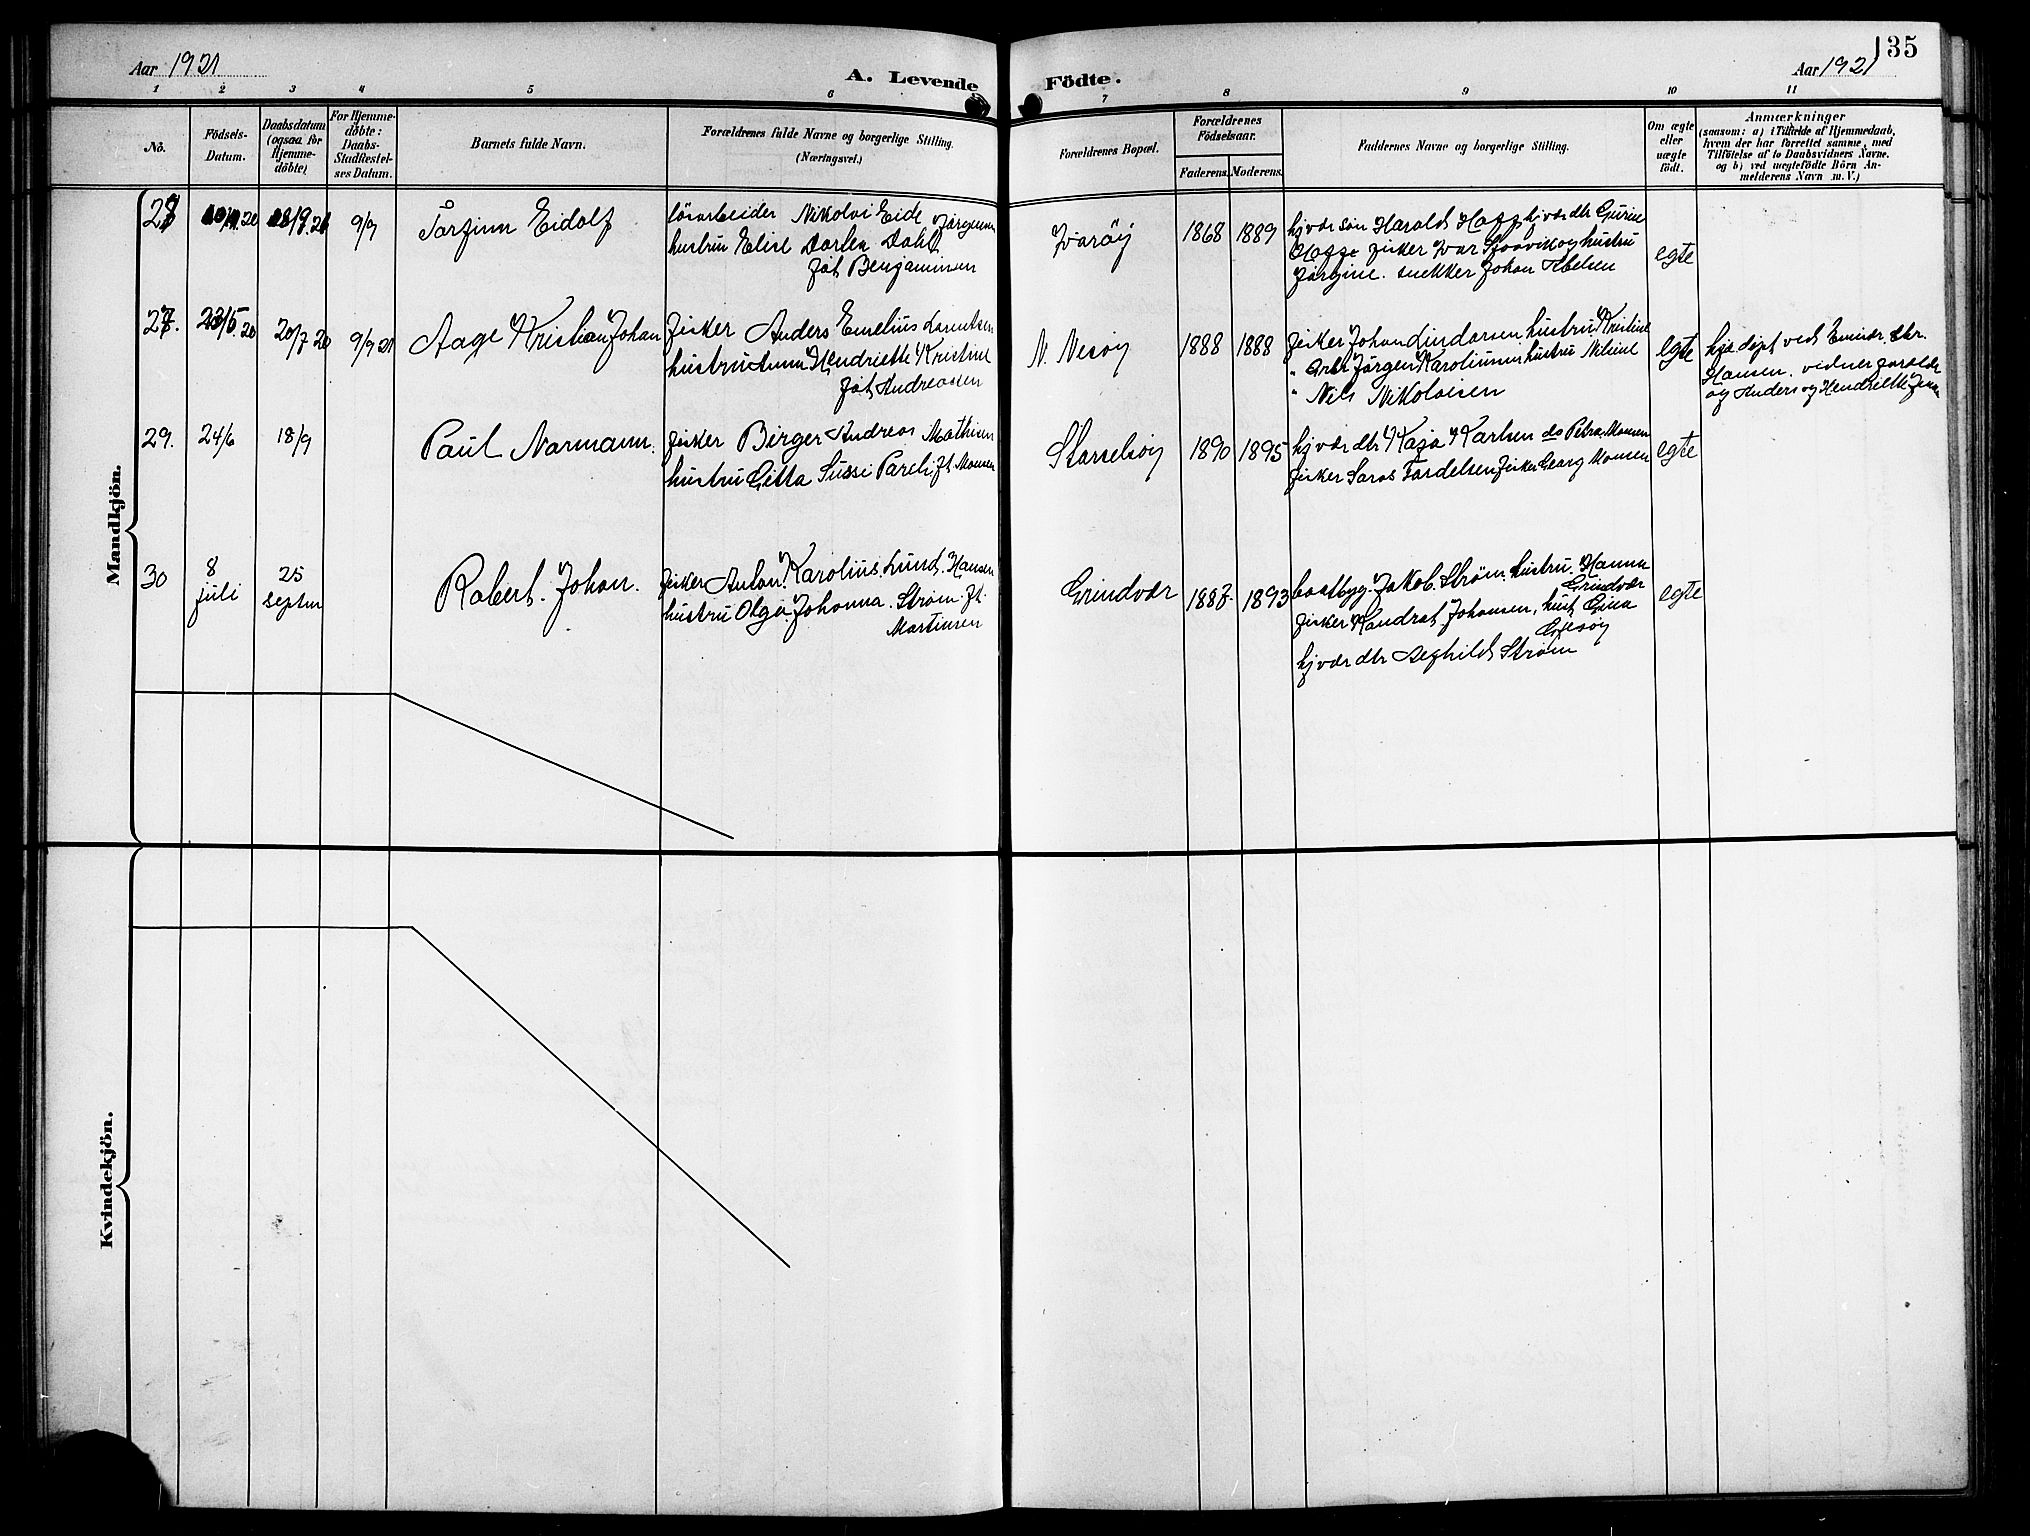 Aar 1921
A. Levende Födte.
135
Aar 1921
1 2 3 4 5 6 7 8 9 10 11
No.
Födsels-
Datum.
Daabsdatum
(ogsaa for
Hjemme-
döbte)
For Hjemme-
döbte:
Daabs-
Stadfæstel-
ses Datum.
Barnets fulde Navn.
Forældrenes fulde Navne og borgerlige Stilling.
(Næringsvei.)
Forældrenes Bopæl.
Forældrenes
Födselsaar.
Faderens. Moderens.
Faddernes Navne og borgerlige Stilling.
Om ægte
eller
uægte
födt.
Anmærkninger
(saasom: a) i Tilfælde af Hjemmedaab,
hvem der har forrettet samme, med
Tilföielse af to Daabsvidners Navne.
og b) ved uegtefödte Börn An-
melderens Navn m. V.)
Mandkjön.
28 9/9 Torfinn Eidolf
Nikolai Eide Jörgensen
hustru Elise Dortea Dahl
föt Benjaminsen
1868 1889
hj vær søn Harald Hagge hj vær dtr Gurine
Hagge fisker Ivar Skaavik og hustru
Jörgine. snekker Johan Abelsen
egte
27. 23/5 20 20/7 20 9/9 21 Aage Kristian Johan
fisker Anders Emelius Lorentsen
hustru Anna Hendriette Kristine
föt Andreassen
N. Nesöy 1888 1888
fisker Johan Lindorsen hustru Kristine
" Arb Jörgen Karoliussen hustru Nilsine
" Nils Nikolaisen
egte
hje. döpt ved Einar Chr.
Hansen. vidner
og Anders og Hendriette
29. 24/6 18/9 Paul Normann.
fisker Birger Andreas Mathisen
hustru Gitta Sussi Pareli ft. Monsen
Storselsöy 1890 1895
hj vær dtr Kaja Karlsen do Petra Monsen
fisker Saros Tordelsen fisker Georg Monsen
egte
30 8 juli 25 septm Robert. Johan.
fisker Anton. Karolius. Lund. Hansen
hustru Olga. Johanna. Strøm. ft.
Martinsen
Grindvær 1887 1893
baatbyg. Jakob. Strøm. hustru. Hanna
Grindvær
fisker Kondrat Johansen, hust Gina
hj vær dtr Strøm
egte
Kvindekjön.